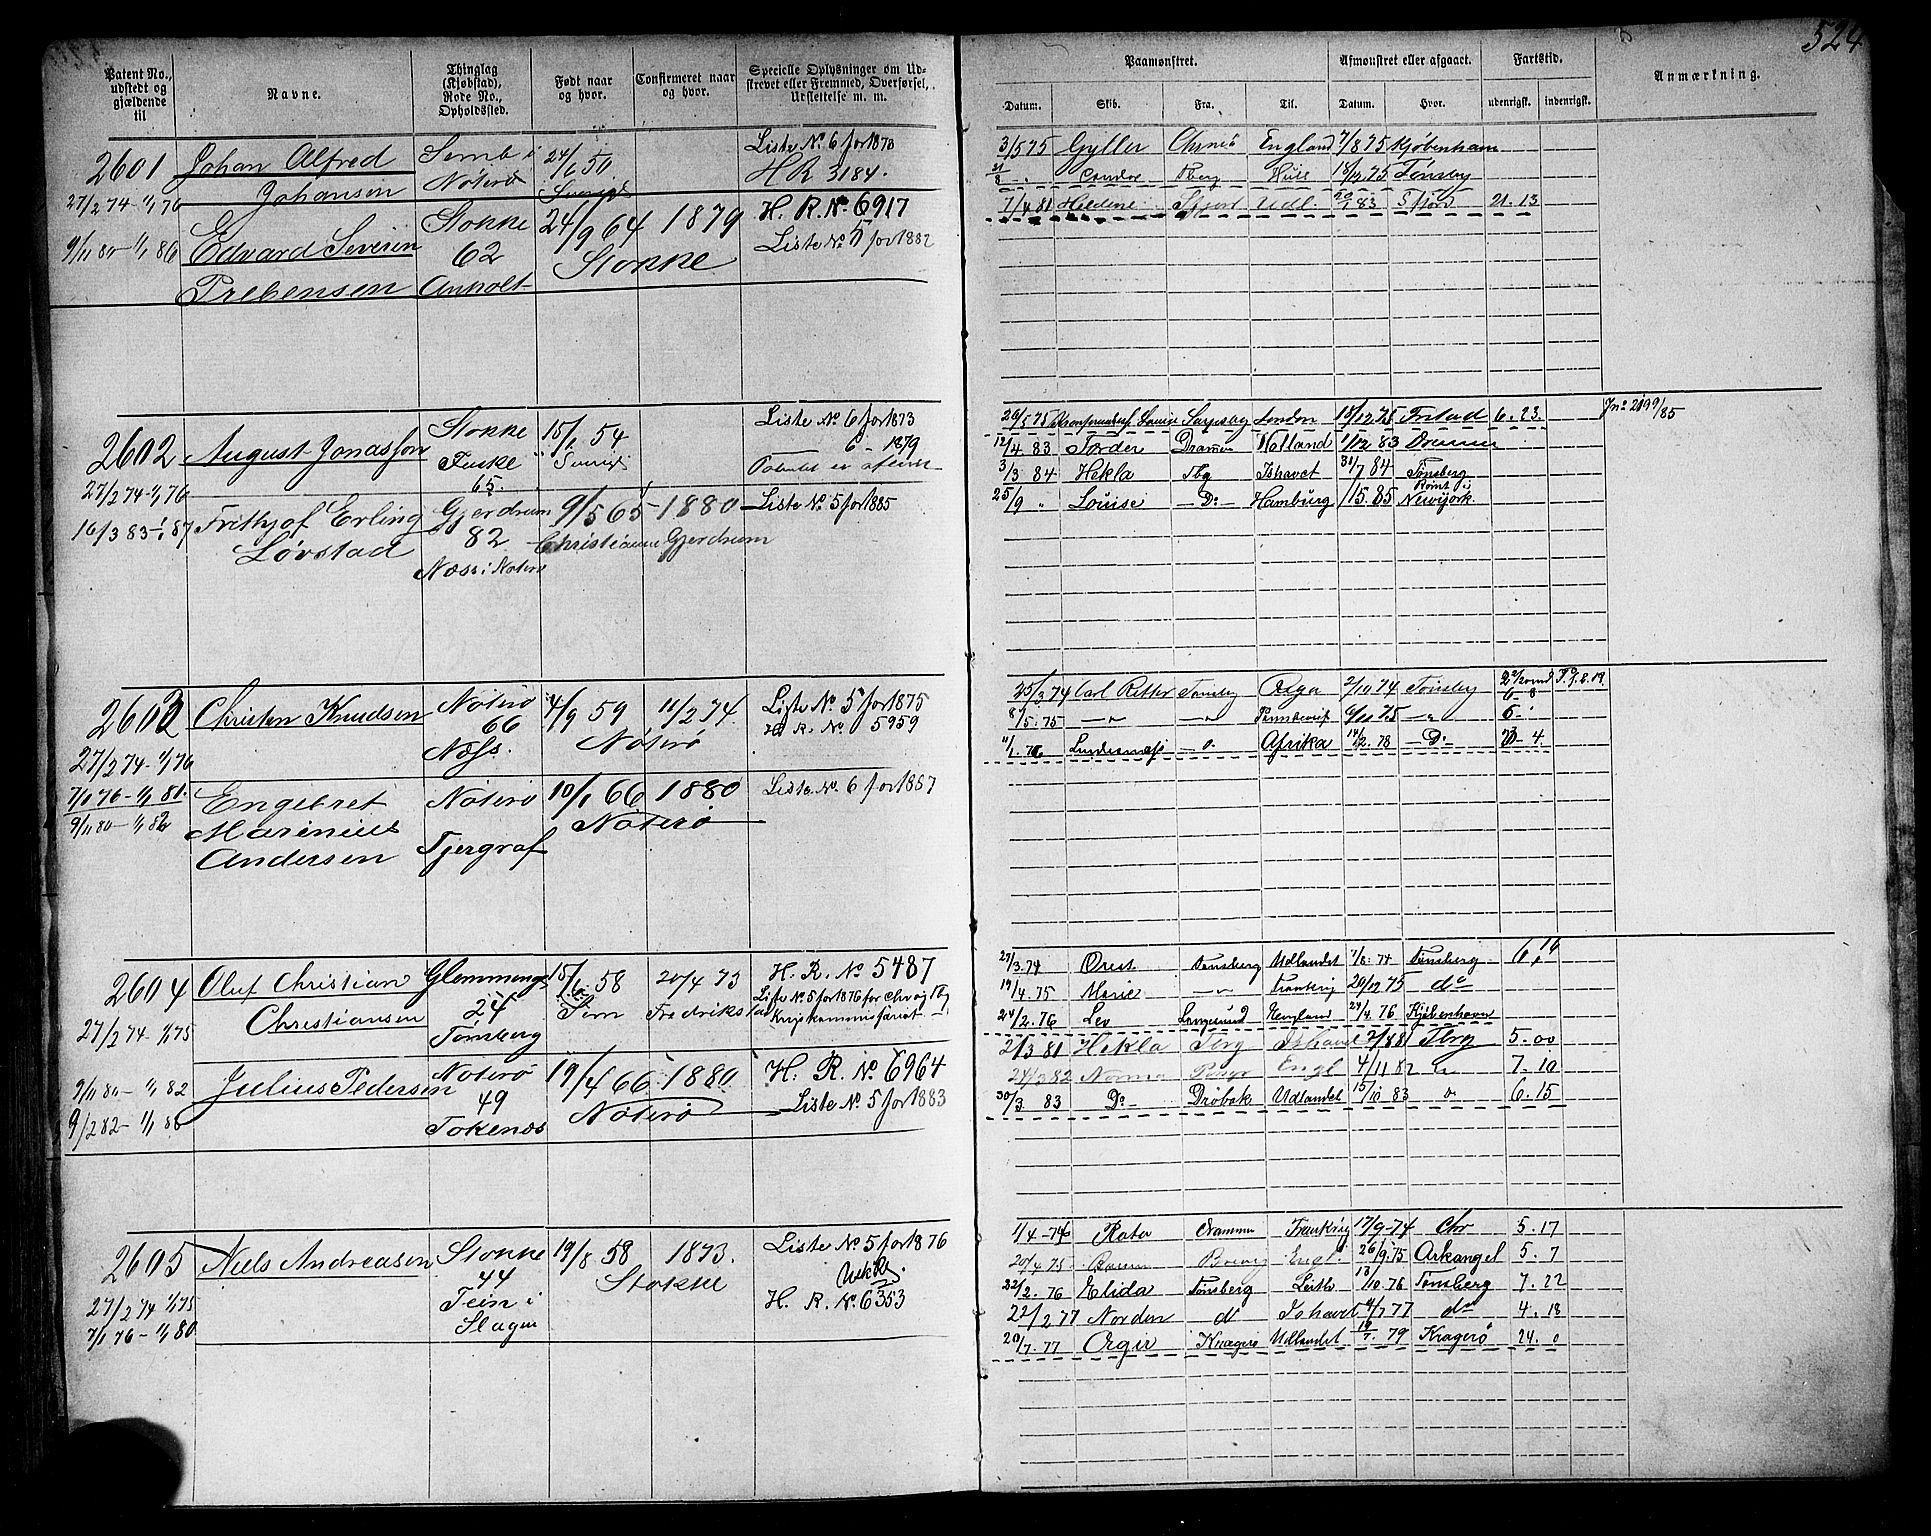 524
Patent No., udstedt og gjældende til
Navne.
Thinglag (Kjøbstad), Rode No., Opholdssted.
Født naar og hvor.
Confirmeret naar og hvor.
Specielle Oplysninger om Udstrevet eller Fremmed, Overførsel, Utslettelse m. m.
Paamønstret.
Afmønstret eller afgaaet.
Fartstid.
Anmærkning.
Datum. Skib. Fra. Til. Datum. Hvor. udenrigsk. indenrigsk.
2601 Johan Alfred Semb i 24/6 50 Liste No 6 for 1873
Johansen Nøterø Sverige H R 3184.
27/2 74 - 1/1 76
9/11 80 - 1/1 86 Edvard Severin Stokke 24/9 64 1879 H. R. No 6917
Prebensen 62 Stokke Liste No 5 for 1882
Anholt
3/5 75 Gyller England 7/8 75 Kjøbenhavn
31/8 " Condor Tberg Hull 18/12 75 Tønsby
7/4 81 Heldene Sfjord Udl. 83 Sfjord 21. 13
2602 August Jonasson Stokke 15/1 54 Liste No 6 for 1873
Fuske Sverige 6 - 1879
65.
27/2 74 - 1/1 76
16/3 83 - 1/1 87 Frithjof Erling Gjerdrum 9/5 65 1880 Liste No 5 for 1885
Løvstad 82 Christiania Gjerdrum
Næss i Nøterø
26/5 75 Louise Sarpsbg London 18/12 75 Fr.stad 6. 23. Jno 2199/85
12/4. 83 Torder Drammen Holland 1/12 83 Drammen
3/3 84 Hekla Tbg Ishavet 31/7 84 Tønsberg
25/9 " Louise - Do - Hamburg 1/5. 85 Rømt i Newyork
2603 Christen Knudsen Nøterø 4/9 59 11/2 74. Liste No 5 for 1875
66 Nøterø H. R. No 5959
Næss.
27/2 74 - 1/1 76
7/1 76 - 1/1 81.
9/11 80 - 1/1 82 Engebret Nøterø 10/1 66 1880 Liste No 6 for 1887
Marinius Nøterø
Andersen Tjergraf
25/3 74 Carl Ritter Tønsby Riga 2/10 74 Tønsby
8/5. 75 - " - - " - 6/11 75 - " - 6 -
11/1. 76 Lindesnæss - " - Afrika 14/2. 78 - Do - 23 - 4.
2604 Oluf Christian Glemminge 15/6 58 20/4 73 H. R. No 5487
Christiansen 24 Sem Fredrikstad Liste No 5 for 1876 for Chr og Tbg
Tønsberg Krigskommissariat
27/2 74 - 1/1 75
9/11 80 - 1/1 82 Julius Pedersen Nøterø 19/4 66 1880 H. R. No 6964
9/2 82 - 1/1 86 49 Nøterø Liste No 5 for 1883
Tokenæs
27/3. 74 Orest Tønsberg Udlandet 7/8. 74 Tønsberg 6. 16
19/4. 75 Marie - " - Frankrig 20/12 75 do
24/2. 76 Lev Langesund England 24/4. 76 Kjøbenhavn
2/3 81 Hekla Tbrg Ishavet 2/8 81 Tbrg 5. 00
24/3 82 Norma Engl 4/11 82 " 7. 10
30/3. 83 Do - Drøbak Udlandet 15/10 83 " 6. 15
2605 Niels Andreasen Stokke 19/8 58 1873. Liste No 5 for 1876
44 Stokke
Tein i H. R. No 6353
Slagen
27/2 74 1/1 75
7/1 76 - 1/1 80
1/4 - 74 Rota Drammen Frankrig 17/9 - 74 Chr 5. 17
20/4 75 Brevig Engl. 26/9. 75 Arkangel 5. 7
22/2. 76 Elida Tønsberg Leith 18/10. 76 Tønsberg 7. 22
22/2 77 Norden do Ishavet 4/7 77 do 4. 18
20/7. 77 Ørgir Kragerø Udlandet 19/7. 79 Kragerø 24. 0